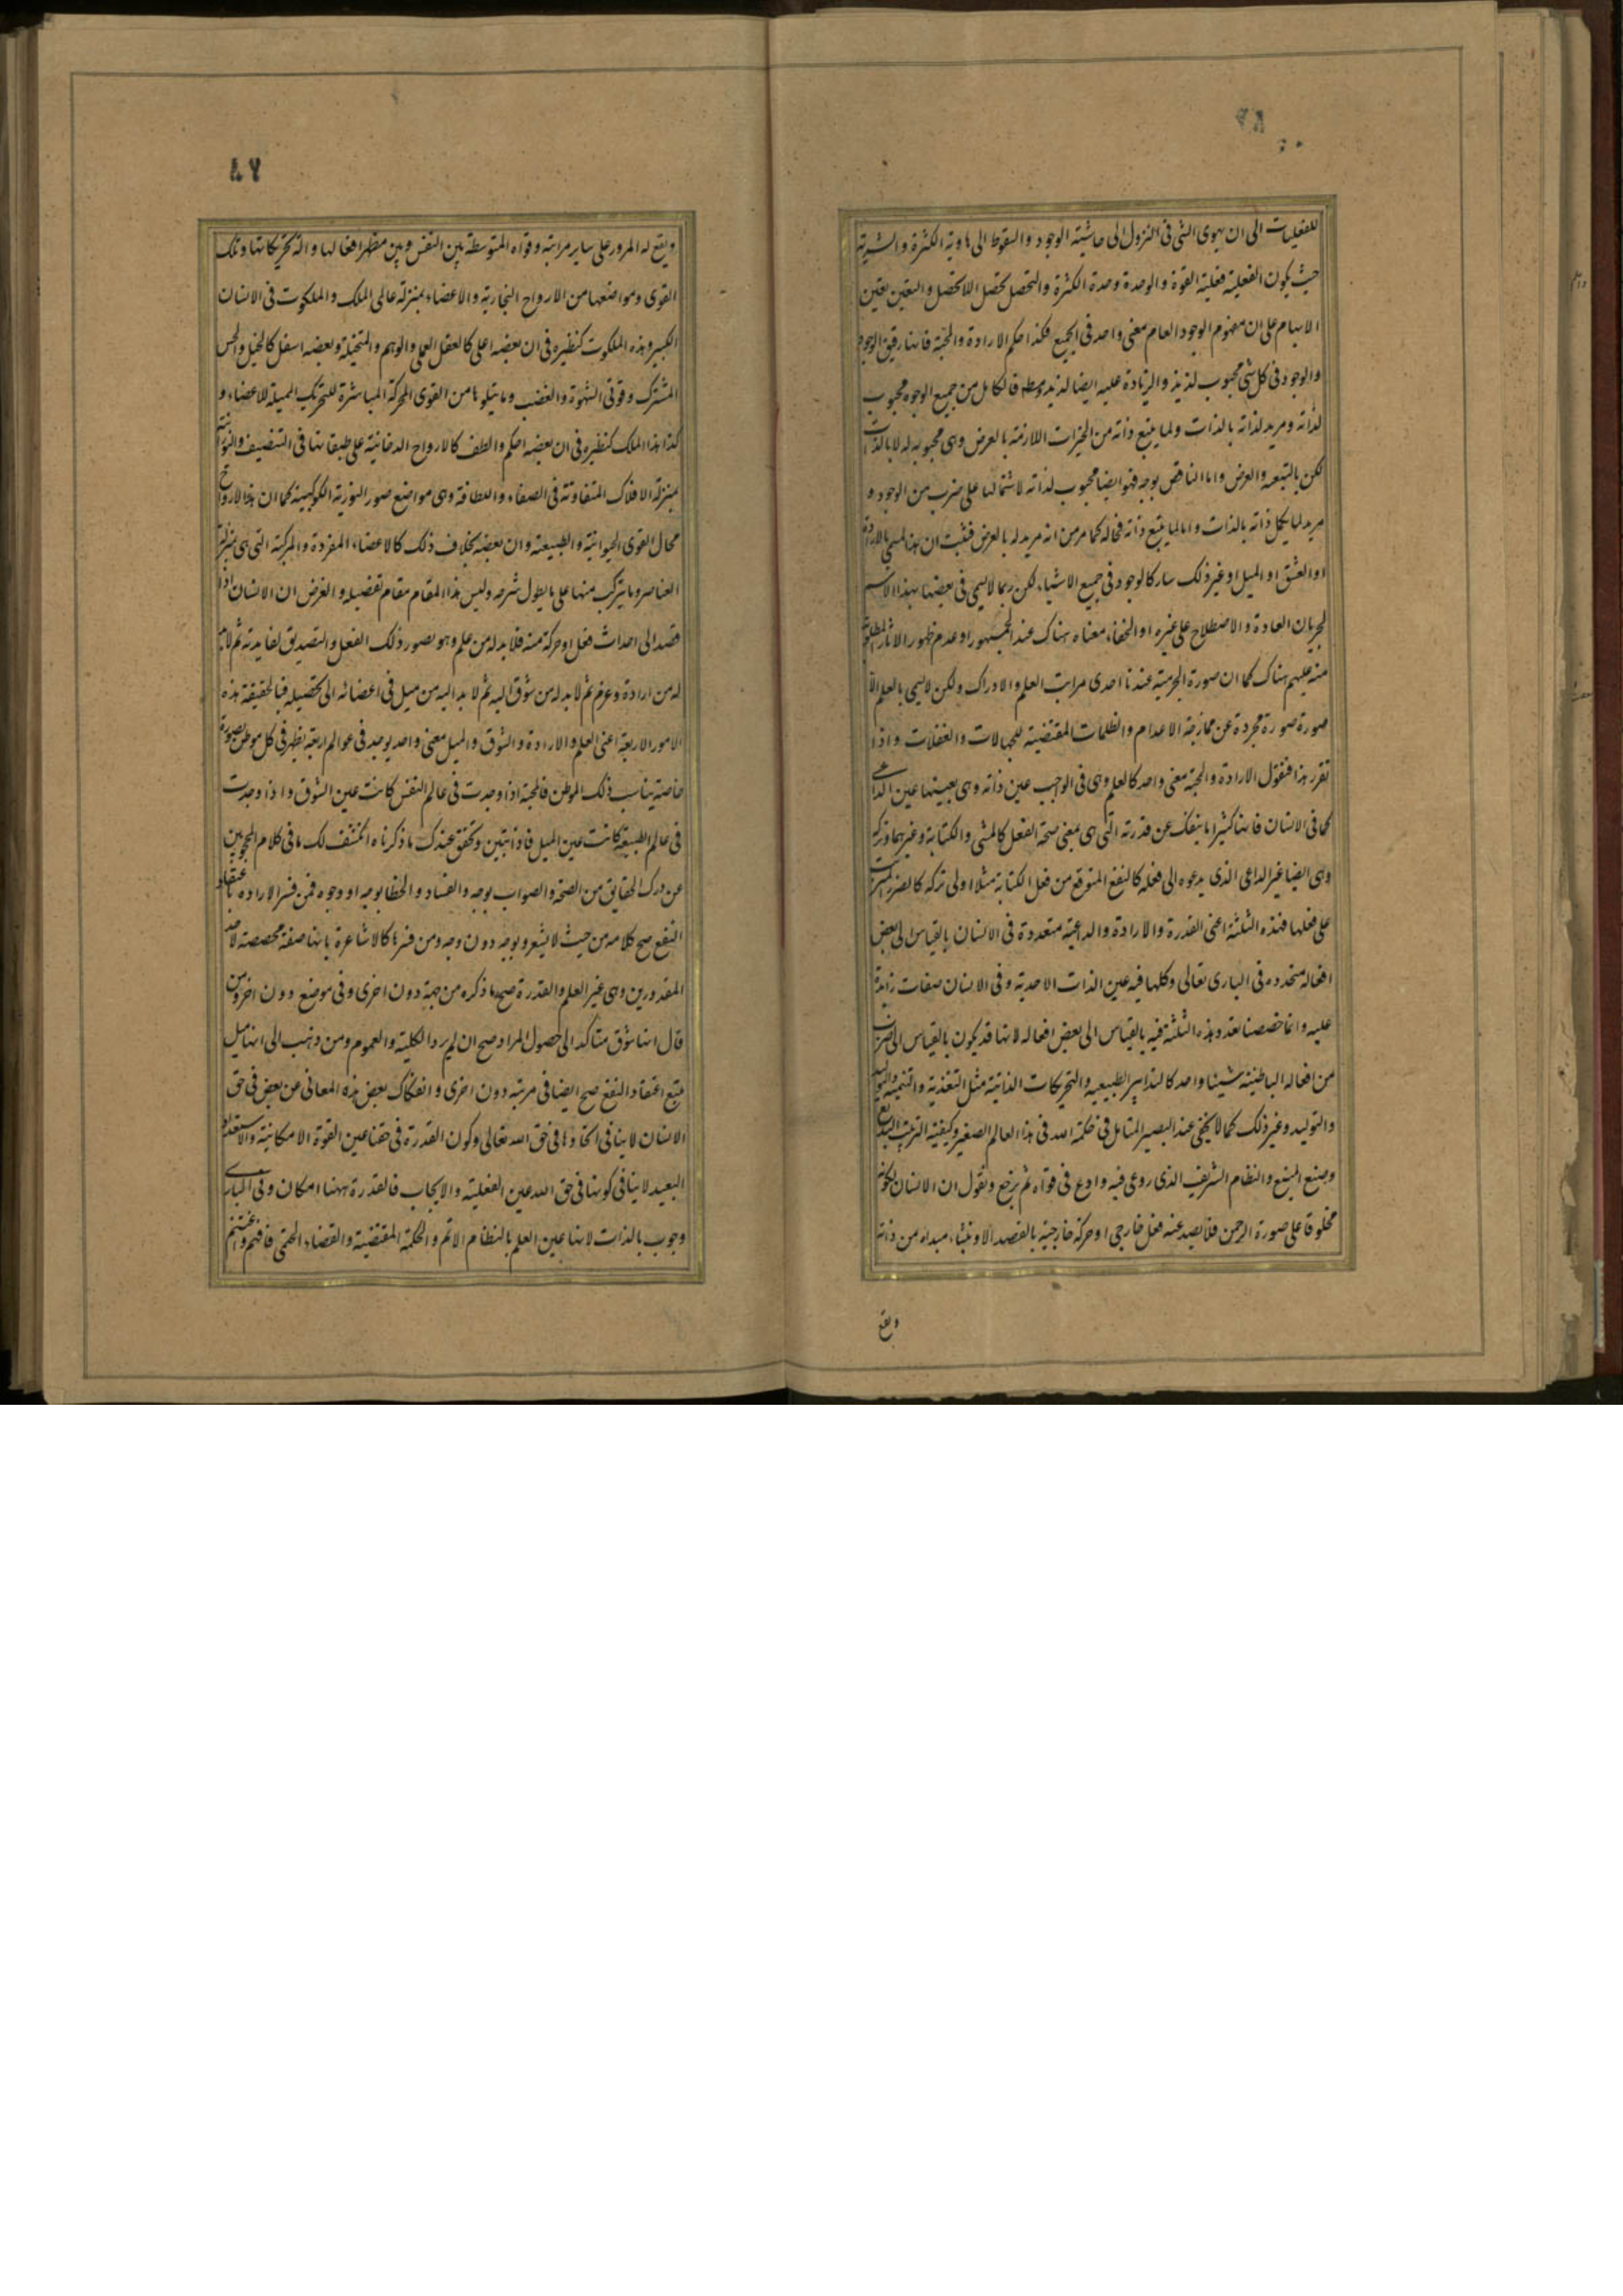 للفعليات الى ان يهوى الشى فى النزول الى حاشية الوجود والسقوط الى هاوية الكثرة والشرية
حيث يكون الفعلية فعلية القوة والوحدة وحدة الكثرة والتحصل تحصل اللاتحصل والتعين تعين
الابهام على ان مفهوم الوجود العام معنى واحد فى الجميع فكذا حكم الارادة والمحبة فانها رفيق الوجود
والوجود فى كل شى محبوب لذيذ والزيادة عليه ايضا لذيذ فالكامل من جميع الوجوه محبوب
لذاته ومريد لذاته بالذات ولما يتبع ذاته من الخيرات اللازمة بالعرض وهى محبوبة له لا بالذات
لكن بالتبعية والعرض واما الناقص بوجه فهو ايضا محبوب لذاته لاشتمالها على ضرب من الوجود و
مريد لما يكمل ذاته بالذات واما لما يتبع ذاته فحاله كما مر من انه مريد له بالعرض فثبت ان هذا المسمى بالارادة
او العشق او الميل او غير ذلك سار كالوجود فى جميع الاشياء لكن ربما لا يسمى فى بعضها بهذا الاسم
لجريان العادة والاصطلاح على غيره او لخفاء معناه هناك عند الجمهور او عدم ظهور الاثار المطلوبة
منه عليهم هناك كما ان صورة الجرمية عندنا احدى مراتب العلم والادراك ولكن لا يسمى بالعلم الا
صورة صورة مجردة عن ممازجة الاعدام والظلمات المقتضية للجهالات والغفلات واذا
تقرر هذا فنقول الارادة والمحبة معنى واحد كالعلم وهى فى الواجب عين ذاته وهى بعينها عين الداعى
كما فى الانسان فانها كثيرا ما ينفك عن قدرته التى هى بمعنى صحة الفعل كالمشى والكتابة وغيرهما وتركه
وهى ايضا غير الداعى الذى يدعوه الى فعله كالنفع المتوقع من فعل الكتابة مثلا او الى تركه كالضرر المترتب
على فعلها فهذه الثلثة اعنى القدرة والارادة والداعية متعددة فى الانسان بالقياس الى بعض
افعاله متحدة فى البارى تعالى وكلها فيه عين الذات الاحدية وفى الانسان صفات زائدة
عليه وانما خصصنا تعدد هذه الثلثة فيه بالقياس الى بعض افعاله لانها قد يكون بالقياس الى ضرب
من افعاله الباطنية شيئا واحدا كالتدابير الطبيعيه والتحريكات الذاتية مثل التغذية والتنمية والتوليد
والتوليد وغير ذلك كما لا يخفى عند البصير المتامل فى حكمة الله فى هذا العالم الصغير وكيفية الترتيب البديع
وصنع المنيع والنظام الشريف الذى روعى فيه واودع فى قواه ثم نرجع ونقول ان الانسان لكونه
مخلوقا على صورة الرحمن فلا يصدر عنه فعل خارجى او حركة خارجية بالقصد الا وينشاء مبداه من ذاته
ويقع
٨٦
ويقع له المرور على ساير مراتبه وقواه المتوسطة بين النفس وبين مظهر افعالها والة تحريكاتها وتلك
القوى ومواضعها من الارواح البخارية والاعضاء بمنزلة عالمى الملك والملكوت فى الانسان
الكبير وهذه الملكوت كنظيره فى ان بعضه اعلى كالعقل العملى والوهم والمتخيلة وبعضه اسفل كالخيل والحس
المشترك وقوتى الشهوة والغضب وما يتلوها من القوى المحركة المباشرة للتحريك المميلة للاعضاء و
كذا هذا الملك كنظيره فى ان بعضه احكم والطف كالارواح الدخانية على طبقاتها فى التنضيف
بمنزلة الافلاك المتفاوتة فى الصفاء واللطافة وهى مواضع صور النورية الكوكبية كما ان هذا الارواح
محال القوى الحيوانية والطبيعية وان بعضه بخلاف ذلك كالاعضاء المفردة والمركبة التى هى بمنزلة
العناصر وما يتركب منها على ما يطول شرحه وليس هذا المقام مقام تفصيله والغرض ان الانسان اذا
قصد الى احداث فعل او حركة منه فلا بد له من علم وهو تصور ذلك الفعل والتصديق لفايدته ثم لا بد
له من ارادة وعزم ثم لا بد له من شوق اليه ثم لا بد اليه من ميل فى اعضائه الى تحصيله فبالحقيقة هذه
الامور الاربعة اعنى العلم والارادة والشوق والميل معنى واحد يوجد فى عوالم اربعة يظهر فى كل موطن بصورة
خاصة يناسب ذلك الموطن فالمحبة اذا وجدت فى عالم النفس كانت عين الشوق واذا وجدت
فى عالم الطبيعة كانت عين الميل فاذا تبين وتحقق عندك ما ذكرناه انكشف لك ما فى كلام المحجوبين
عن درك الحقايق من الصحة والصواب بوجه والفساد والخطا بوجه او وجوه فمن فسر الارادة باعتقاد
النفع صح كلامه من حيث لا يشعر وبوجه دون وجه ومن فسرها كالاشاعرة بانها صفة مخصصة لاحد
المقدورين وهى غير العلم والقدرة صح ما ذكره من جهة دون اخرى وفى موضع دون اخر ومن
قال انها شوق متاكد الى حصول المراد صح ان لم يرد الكلية والعموم ومن ذهب الى انها ميل
يتبع اعتقاد النفع صح ايضا فى مرتبة دون اخرى وانفكاك بعض هذه المعانى عن بعض فى حق
الانسان لا ينافى اتحادها فى حق الله تعالى وكون القدرة فى حقنا عين القوة الامكانية والاستعداد
البعيد لا ينافى كونها فى حق الله عين الفعلية والايجاب فالقدرة ههنا امكان وفى البارى
وجوب بالذات لانها عين العلم بالنظام الاتم والحكمة المقتضية والقضاء الحتمى فافهم واغتنم